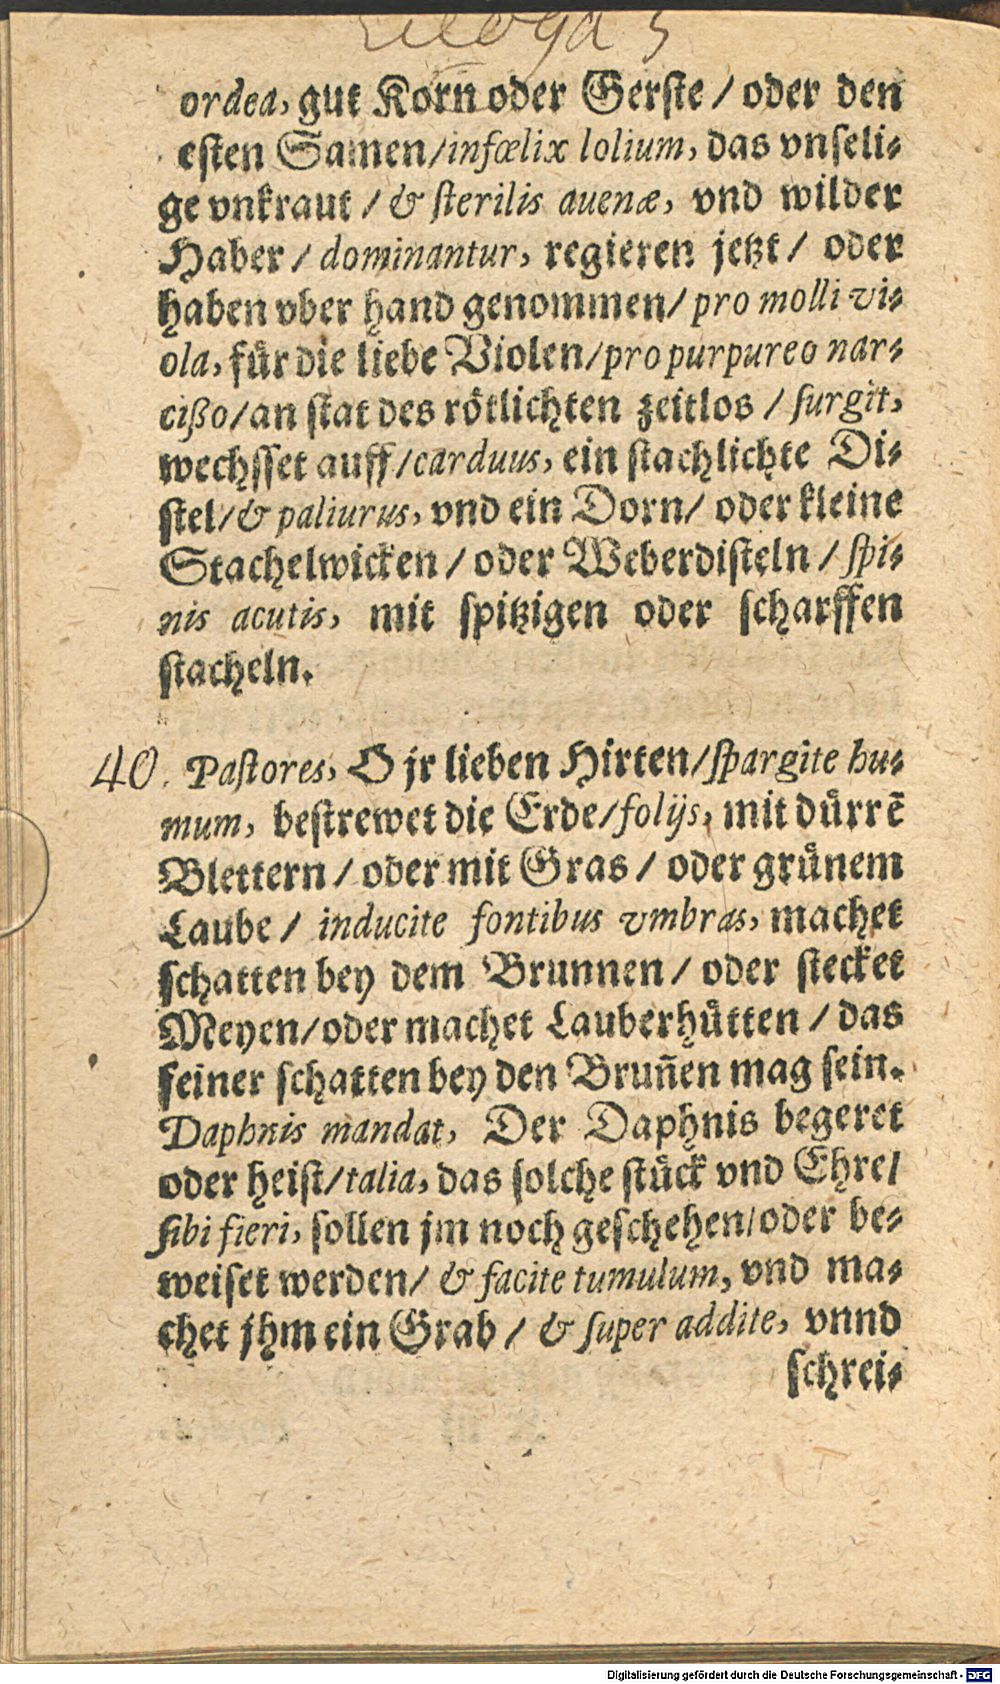 Ecloga 5
ordea, gut Korn oder Gerſte / oder den
eſten Samen/infœlix lolium, das vnſeli-
ge vnkraut / & ſterilis auenæ, vnd wilder
Haber / dominantur, regieren jetzt / oder
haben vber hand genommen/ pro molli vi-
ola, für die liebe Violen/pro purpureo nar-
cißo/an ſtat des rötlichten zeitlos / ſurgit,
wechſſet auff/carduus, ein ſtachlichte Di-
ſtel/& paliurus, vnd ein Dorn/ oder kleine
Stachelwicken / oder Weberdiſteln / ſpi-
nis acutis, mit ſpitzigen oder ſcharffen
ſtacheln.
40. Paſtores, O jr lieben Hirten/ſpargite hu-
mum, beſtrewet die Erde/folijs, mit dürrē
Blettern / oder mit Gras / oder grünem
Laube / inducite fontibus vmbras, machet
ſchatten bey dem Brunnen / oder ſtecket
Meyen/oder machet Lauberhütten / das
feiner ſchatten bey den Bruñen mag ſein.
Daphnis mandat, Der Daphnis begeret
oder heiſt/talia, das ſolche ſtück vnd Ehre/
ſibi fieri, ſollen jm noch geſchehen/oder be-
weiſet werden/ & facite tumulum, vnd ma-
chet jhm ein Grab / & ſuper addite, vnnd
ſchrei-
Digitalisierung gefördert durch die Deutsche Forschungsgemeinschaft - DFG